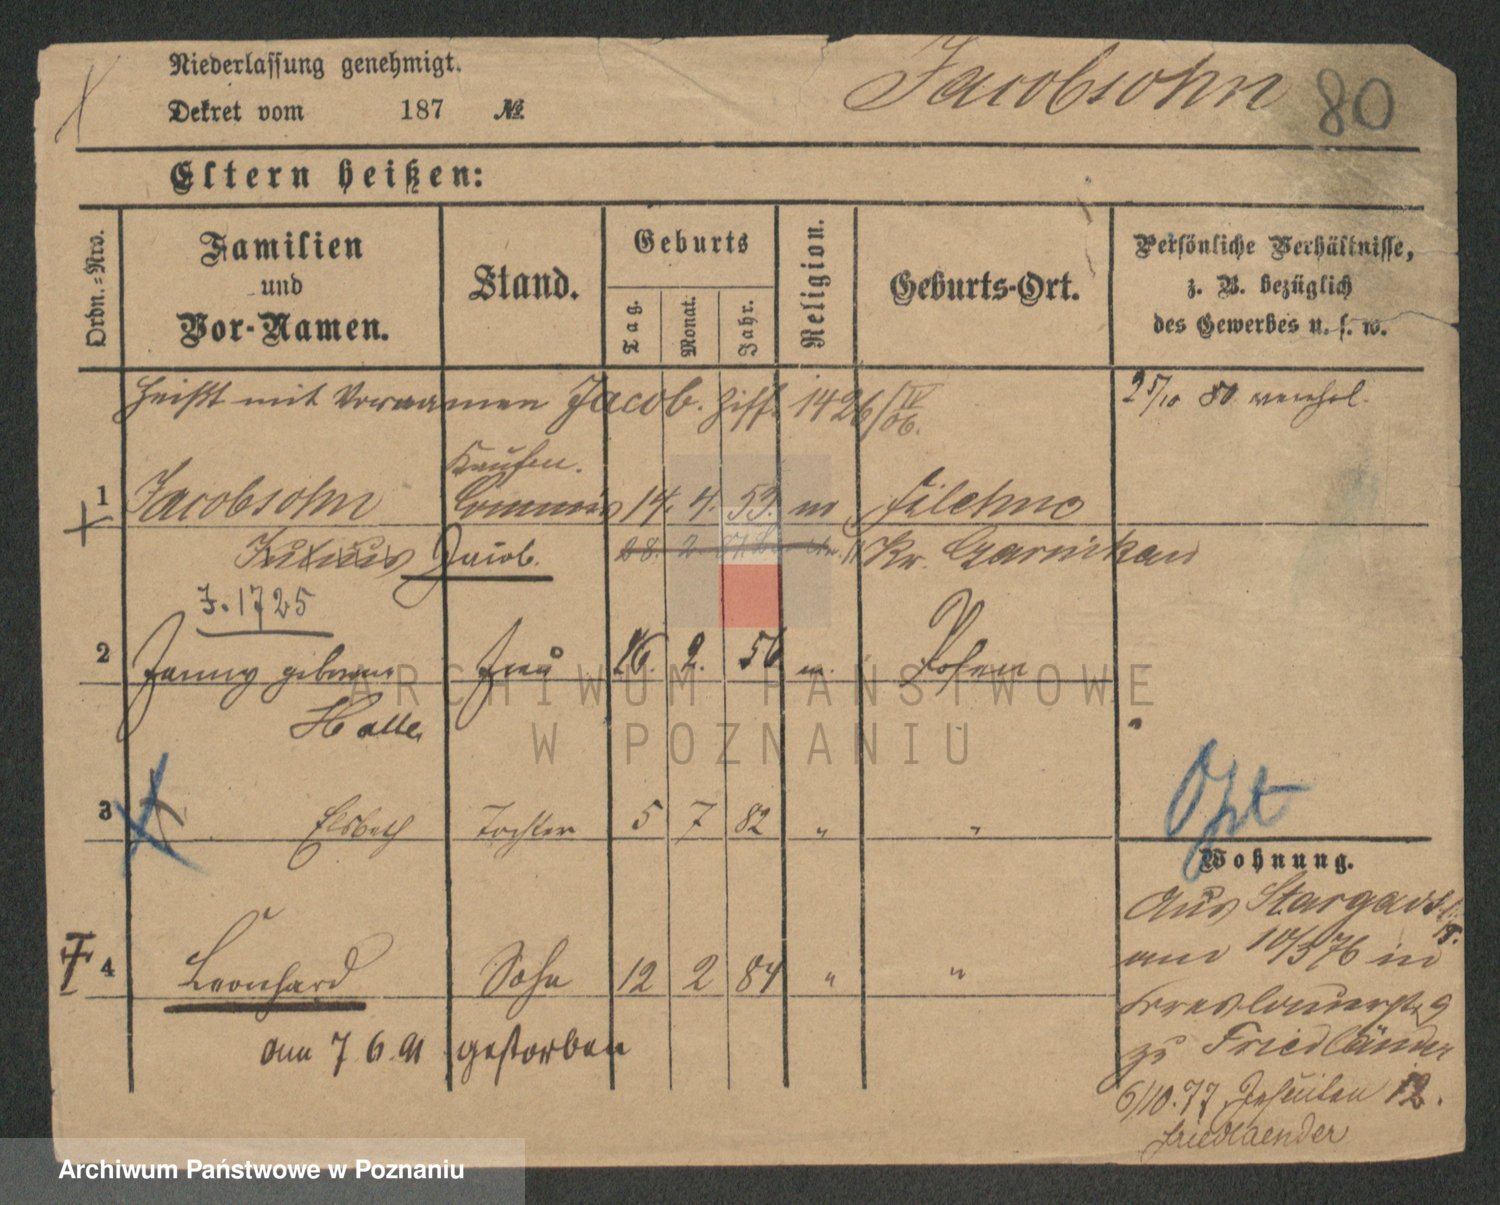 Niederlassung genehmigt.
Dekret vom 187 №
Jacobsohn 80
Eltern heißen:
Ordn.-Nro.
Familien
und
Vor-Namen.
Stand.
Geburts
Tag.
Monat.
Jahr.
Religion.
Geburts-Ort.
Persönliche Verhältnisse,
z. B. bezüglich
des Gewerbes u. s. w.
heißt mit Vornamen Jacob. Ziff. 1426/IV 06.
25/10 80
Kaufm.
1 Jacobsohn Commis 14. 4. 53. m Filehne
Julius Jacob. 28. 2. Kr. Czarnikau
J. 1725
2 Fanny geborene Frau 26. 2. 56 m. Posen
Halle
"
3 Elsbeth Tochter 5 7 82 " "
Opt
Wohnung.
aus Stargardt
am 10/5 76 in
4 Leonhard Sohn 12 2 84 " "
Breslauerstr 9
am 7 6 91 gestorben
zu Friedländer
6/10.77 Jesuiten 12.
Friedlaender
ARCHIWUM PAŃSTWOWE
W POZNANIU
Archiwum Państwowe w Poznaniu